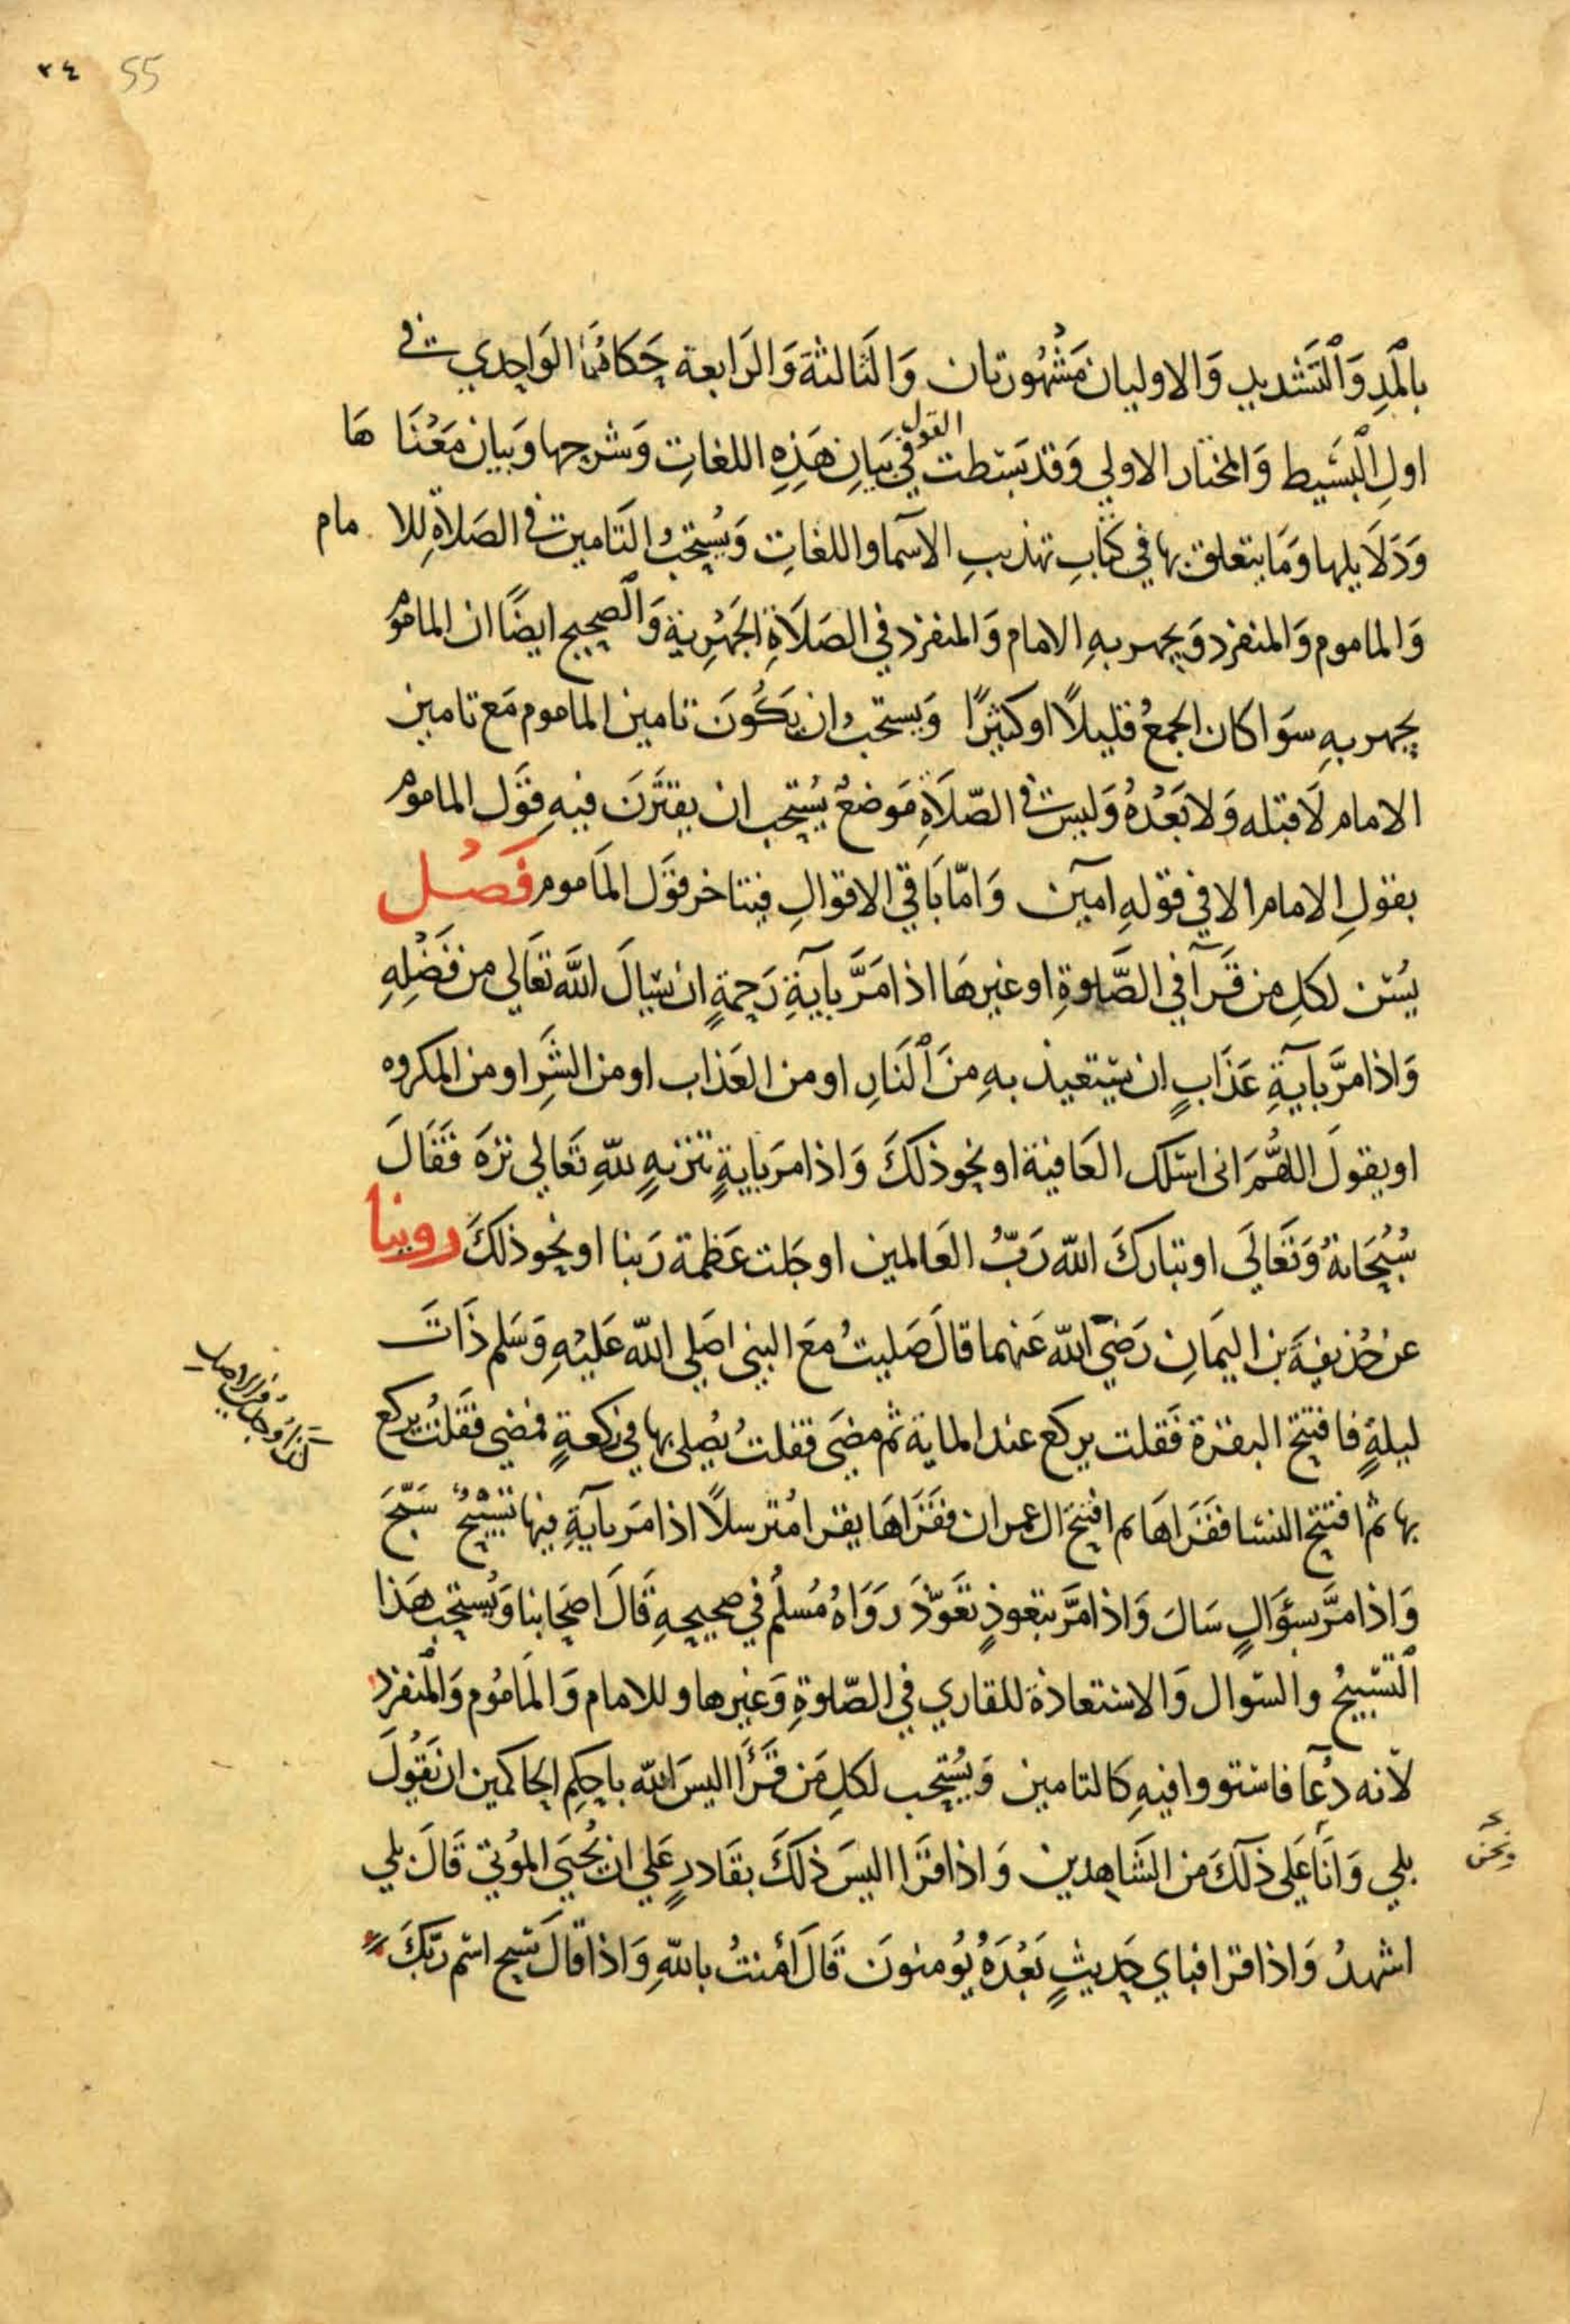 ٣٤ 55
بالْمَدِ وَالْتَشديد وَالاوليان مَشْهُورتان وَالثَالثة وَالرَابعة حَكاهُمَا الوَاحِدي في
اولِ البَسَيط وَالمختار الاولي وَقد بَسَطت القول في بَيَانِ هَذِهِ اللغاتِ وَشرحها وَبيان مَعْنَا هَا
وَدَلَايلها وَمَا يتعلق بها في كتابِ تهذيبِ الاسَما واللغاتِ وَيُستحَبُ التَامين في الصَلاةِ للا مام
وَالماموم وَالمنفرد وَيجهر بهِ الامام وَالمنفرد في الصَلَاةِ الجَهْرِية وَالْصحيح ايضًا ان الماموم
يجهر بهِ سوَا كان الجمعُ قليلاً او كثيرًا وَيستحبُ ان يَكُونَ تامين الماموم مَع تامين
الامام لَا قبله وَلا بَعْدُهُ وَليسَ في الصّلَاةِ مَوضعٌ يُستحب ان يقترَن فيهِ قوَل الماموم
بقولِ الامام الا في قولهِ امين وَامّا بَاقي الاقوالِ فيتاخر قوَل المَاموم فَصْل
يُسَن لكلِ من قَرَآ في الصَّلوةِ او غيرهَا اذا مَرَّ بآيةِ رَحمةٍ ان يسَالَ اللَّه تعَالي من فَضْلِهِ
وَاذا مرَّ بآيةِ عَذَابٍ ان يستعيذ بهِ منَ النَارِ او من العَذاب او من الشَرِ او من المكروه
او يقولَ اللهُمَّ اني اسَلك العَافية او نحو ذلكَ وَاذا مرَ بايةٍ تنزيهٍ للّهِ تعَالي نزهَ فقَالَ
سُبْحَانهُ وَتَعَالَى او تباركَ اللّه رَبُّ العَالمين او جَلت عَظمة رَبنا او نحو ذلكَ روينا
عن حُذيفةَ بن اليمَانِ رَضيَ اللّه عَنهما قالَ صَليتُ مَعَ النبي صَلي اللّه عَليْهِ وَسَلم ذَاتَ
ليلةٍ فافتتح البقرة فَقلت يركع عند الماية ثم مضيَ فقلتُ يُصلي بها في ركعةٍ فمضي فَقلتُ يركع
بها ثم افتتح النسَا فقَرَاهَا ثم افتتحَ ال عمران فقَرَاهَا يقرا مُترسلاً اذا مَر بآيةِ فيها تَسْبيحٌ سَبّحَ
كذا وجد في الاصل
وَاذا مرَّ بسؤَالٍ سَالَ وَاذا مَرَّ بتعوذٍ تعَوّذَ رَوَاهُ مُسلمٌ في صحيحهِ قَالَ اصحَابنا وَيُستحب هَذا
الْتسبيحُ والسّوال وَالاستعاذة للقاري في الصّلوةِ وَغيرها وللامام وَالمَامُوم وَالْمنفرد
لانه دُعآ فاستووا فيهِ كالتامين وَيُستحب لكلِ مَن قَرَأَ اليسَ اللّه باحكم الحاكمين ان يَقُولَ
بلي وَانَا عَلي ذلكَ من الشَاهدين وَاذا قرَا اليسَ ذلكَ بقَادرٍ عَلي ان يُحيَي المُوتي قَالَ بلي
ونحن
اشهدُ وَاذا قرا فباي حَديثٍ بَعْدَهُ يُومنونَ قَالَ امْنتُ باللّهِ وَاذا قالَ سَبح اسم ربّكَ